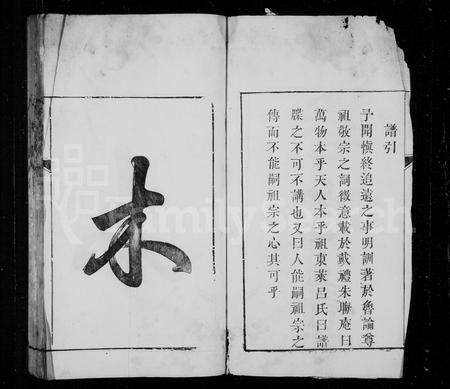 譜引
予聞慎終追遠之事明訓著於魯論尊
祖敬宗之詞微意載於戴禮朱聯庵曰
萬物本乎天人本乎祖東萊呂氏曰譜
牒之不可不講也又曰人能嗣祖宗之
傳而不能嗣祖宗之心其可乎
木
FamilySearch